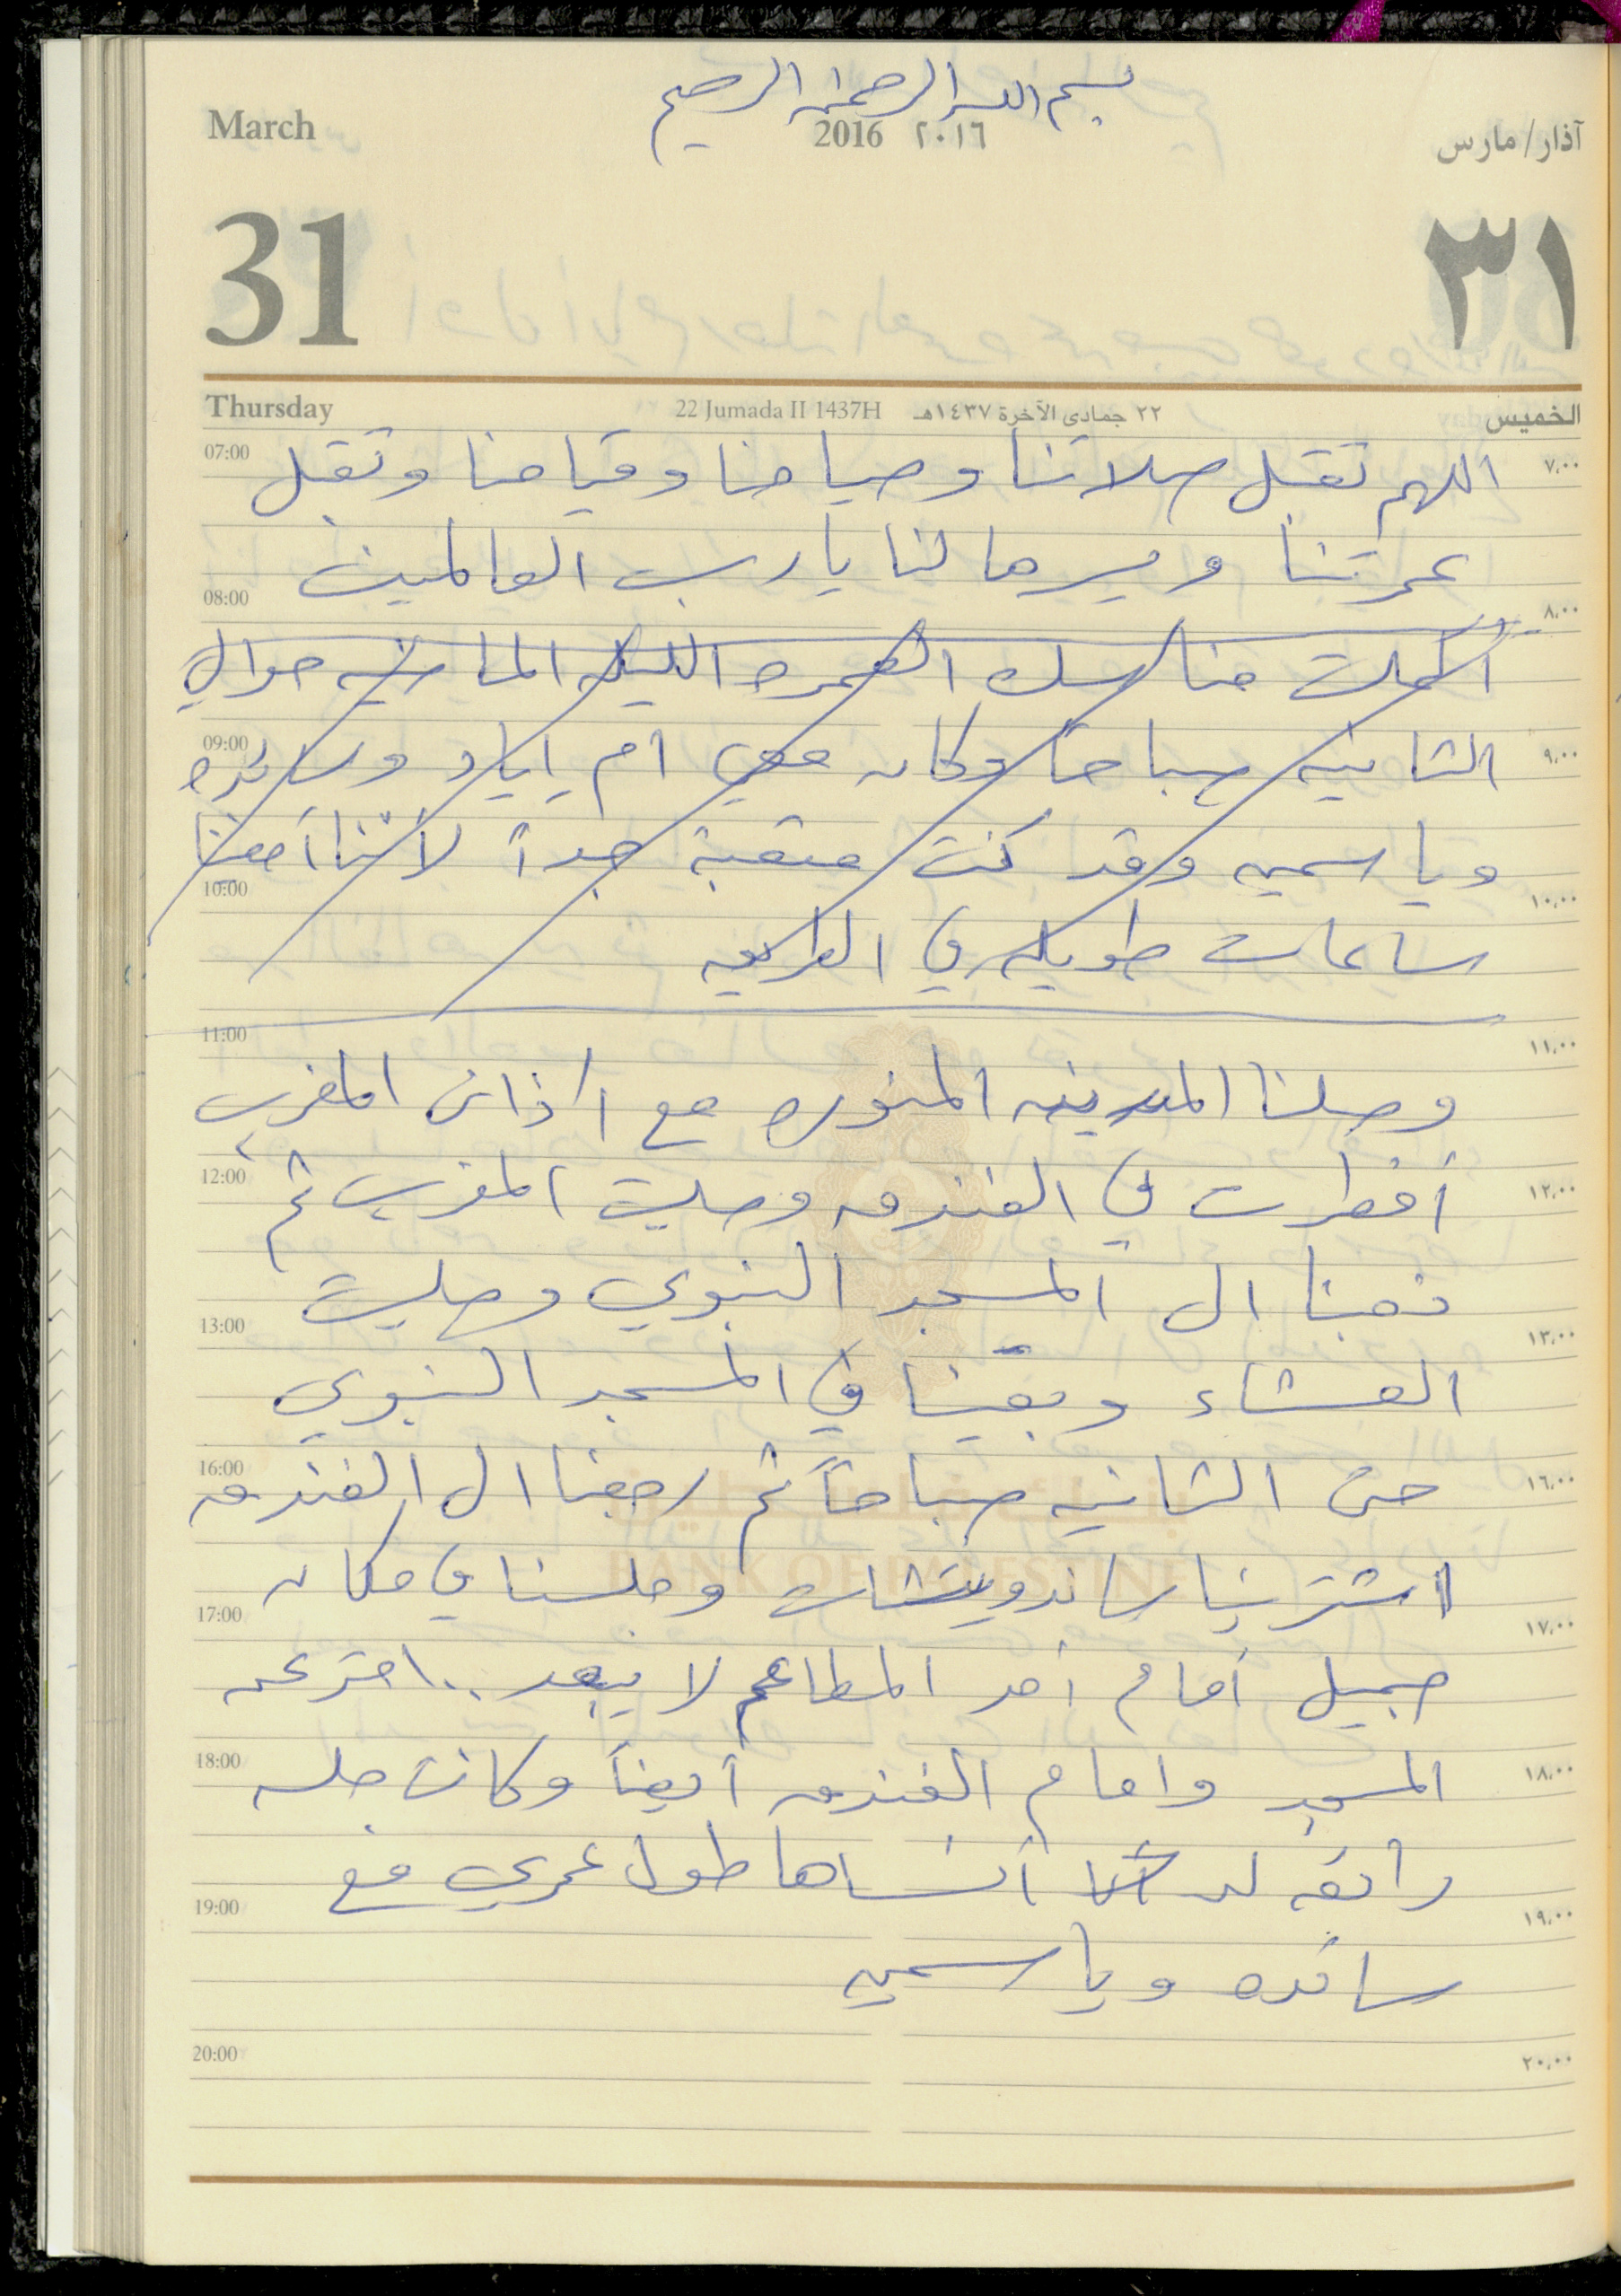 بسم الله الرحمن الرحيم
March 2016 ٢٠١٦ آذار/مارس
31 ٣١
Thursday 22 Jumada II 1437H ٢٢ جمادى الآخرة ١٤٣٧هـ الخميس
07:00 اللهم تقبل صلاتنا وصيامنا وقيامنا وتقبل ٧,٠٠
عمرتنا ويسرها لنا يا رب العالمين
08:00 ٨,٠٠
أكملت مناسك العمره الليله الماضيه حوالي
09:00 الثانيه صباحا وكان معي ام إياد وسائده ٩,٠٠
وياسمين وقد كنت متعبة جداً لأننا أمضينا
10:00 ١٠,٠٠
ساعات طويله في الطريق
11:00 ١١,٠٠
وصلنا المدينه المنوره مع أذان المغرب
12:00 أفطرت في الفندق وصليت المغرب ثم ١٢,٠٠
ذهبنا الى المسجد النبوي وصليت
13:00 ١٣,٠٠
العشاء وبقينا في المسجد النبوي
16:00 حتى الثانيه صباحاً ثم رجعنا الى الفندق ١٦,٠٠
بنك فلسطين
BANK OF PALESTINE
اشترينا ساندويتشات وجلسنا في مكان
17:00 ١٧,٠٠
جميل أمام أحد المطاعم لا يبعد .. متر عن
18:00 المسجد وامام الفندق أيضاً وكانت جلسه ١٨,٠٠
رائعه لن أنساها طول عمري مع
19:00 ١٩,٠٠
سائده وياسمين
20:00 ٢٠,٠٠